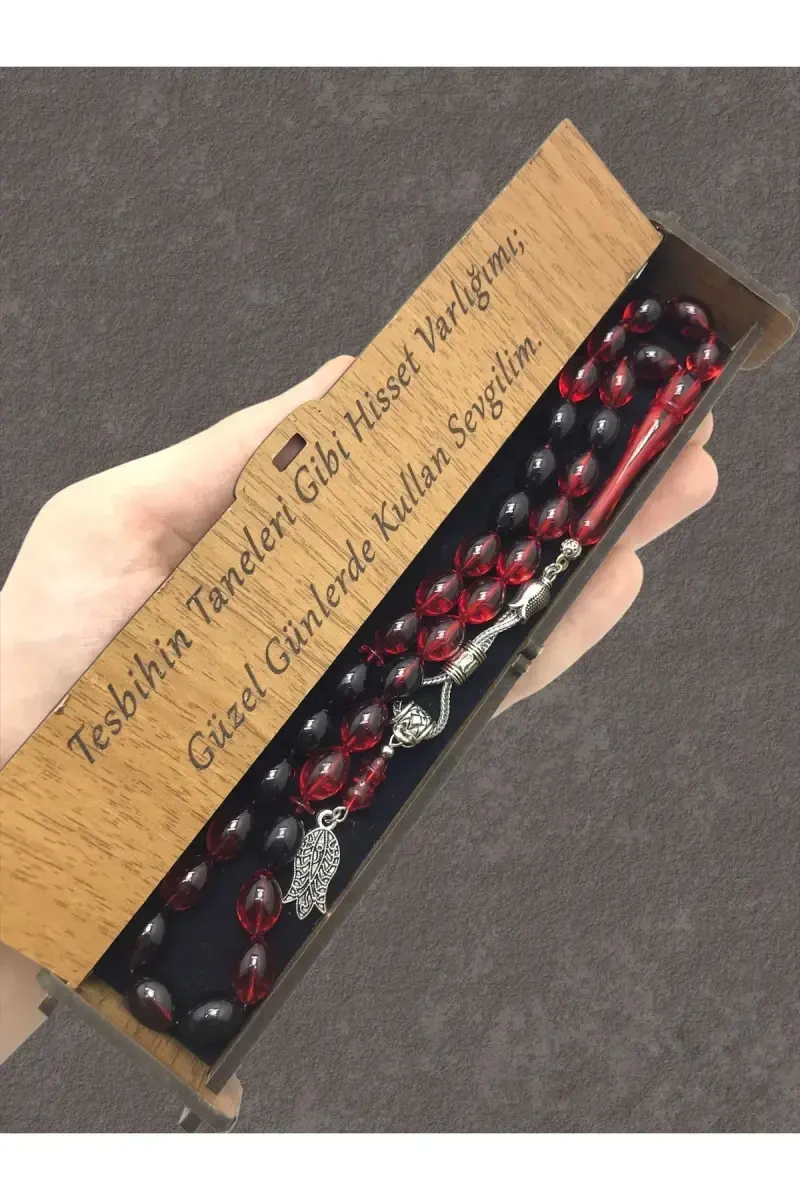 Tesbihin Taneleri Gibi Hisset Varlığımı;
Güzel Günlerde Kullan Sevgilim.